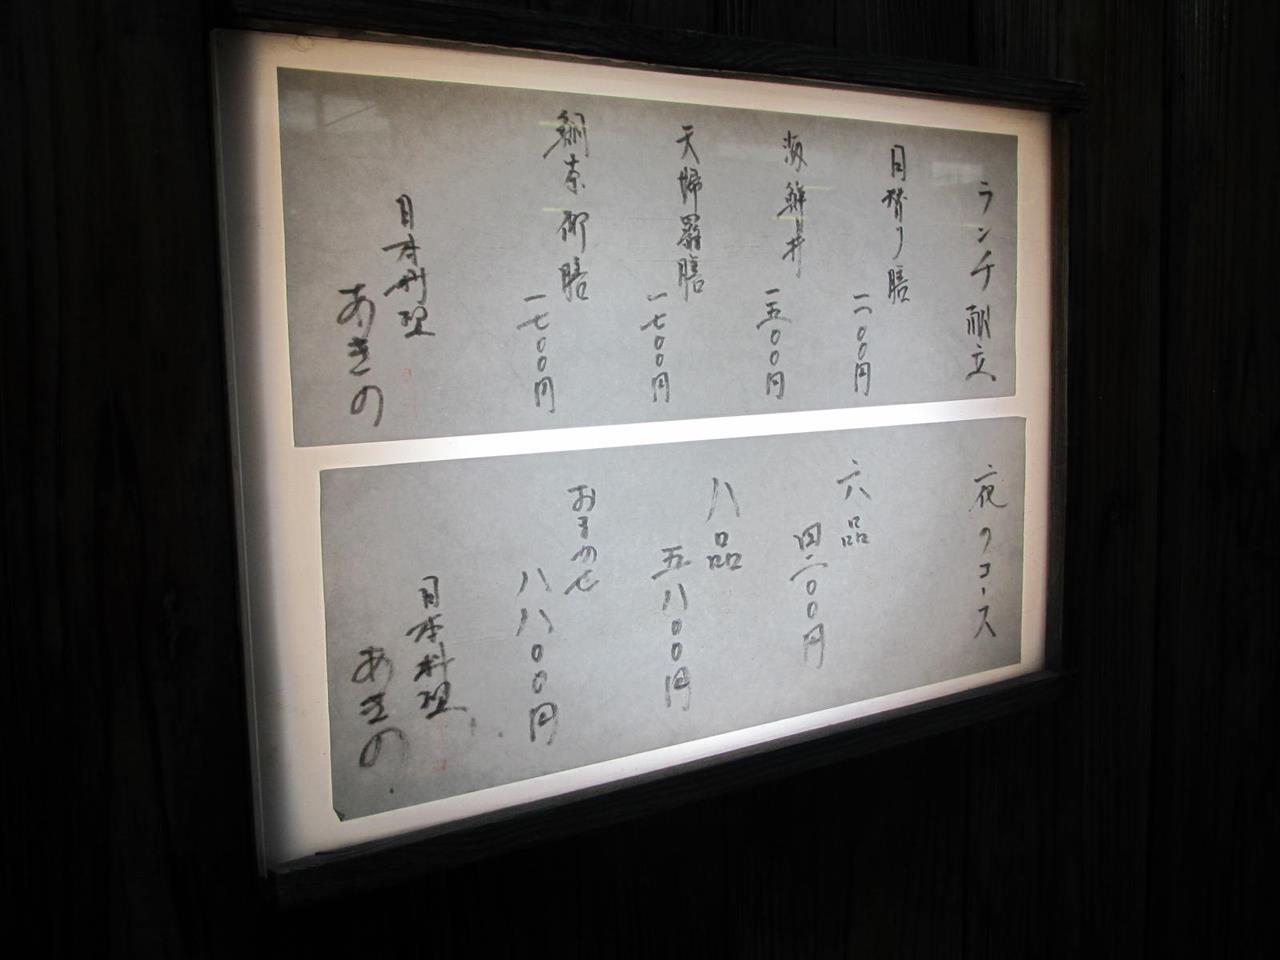 ランチ献立
日替り膳
一一〇〇円
海鮮丼
一五〇〇円
天婦羅膳
一七〇〇円
鯛茶御膳
一七〇〇円
日本料理
あきの
夜のコース
六品
四二〇〇円
八品
五八〇〇円
おまかせ
八八〇〇円
日本料理
あきの